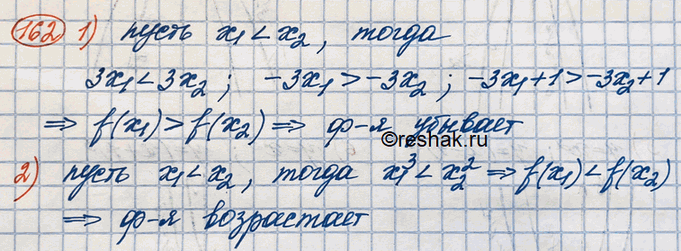 162 1) пусть x₁ < x₂, тогда
3x₁ < 3x₂; -3x₁ > -3x₂; -3x₁+1 > -3x₂+1
⇒ f(x₁) > f(x₂) ⇒ ф-я убывает
©reshak.ru
2) пусть x₁ < x₂, тогда x₁³ < x₂² ⇒ f(x₁) < f(x₂)
⇒ ф-я возрастает